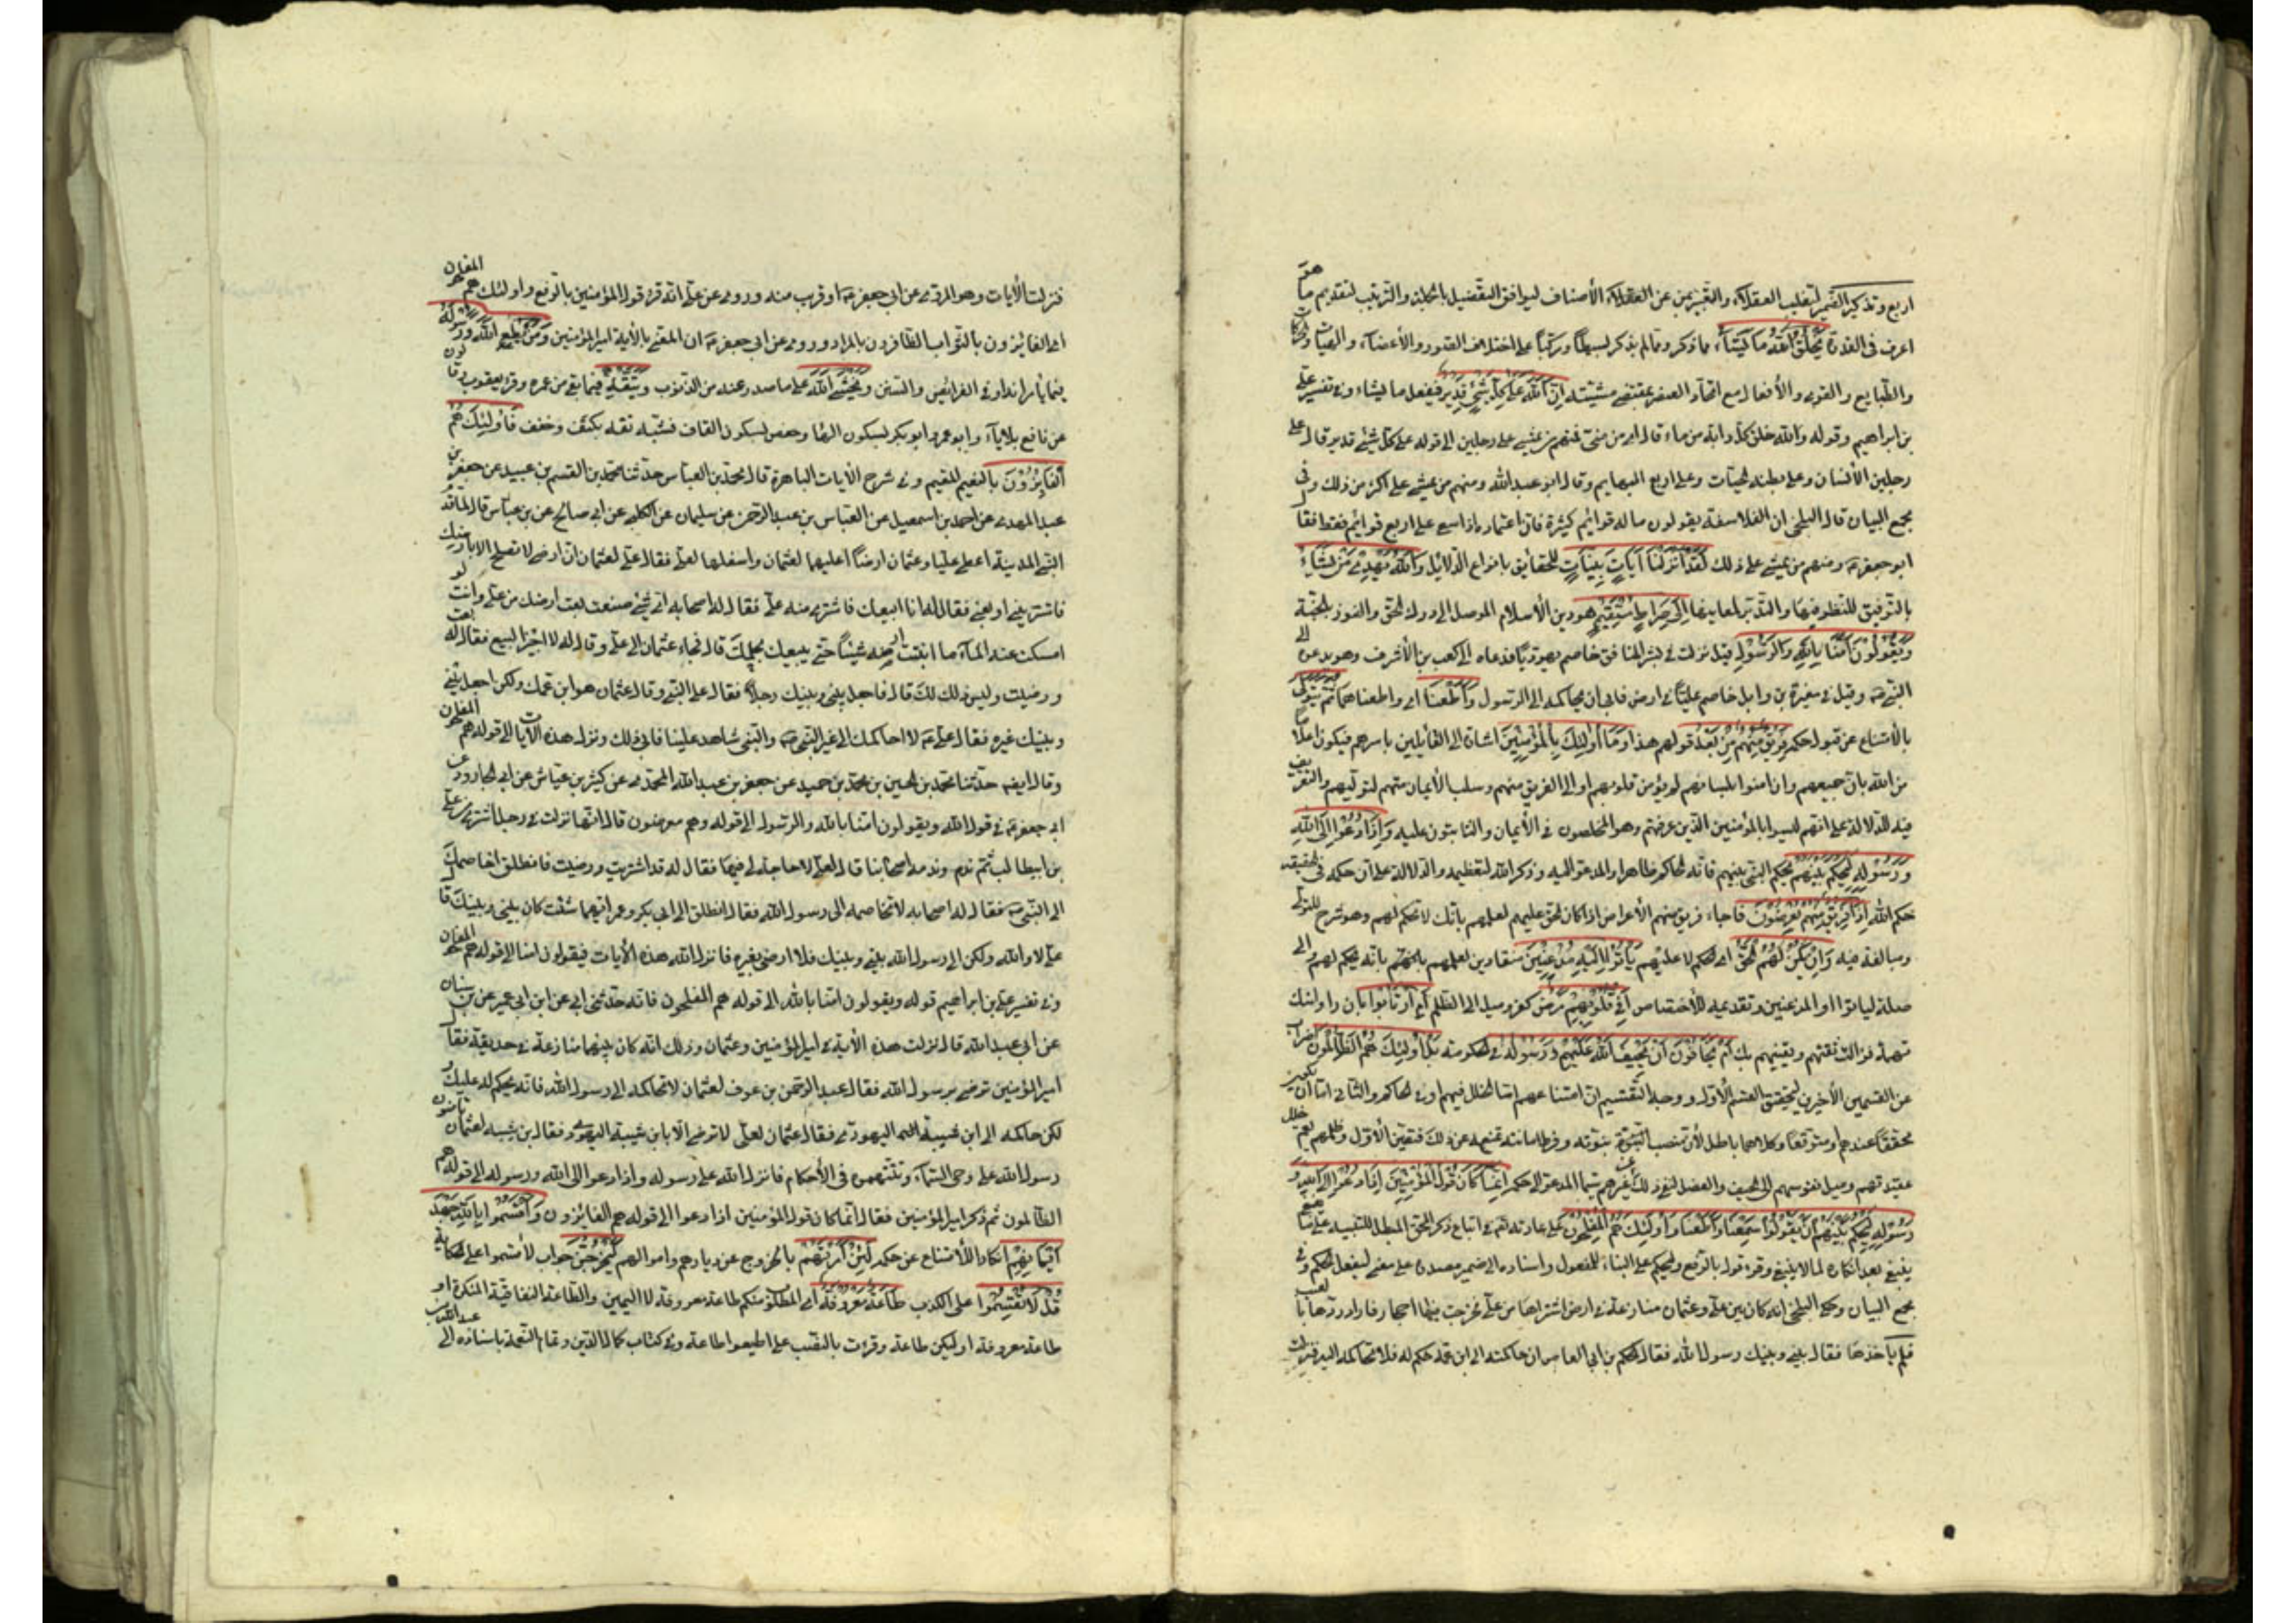 اربع وتذكير الضمير لتغليب العقلاء والتعبير بمن عن العقلاء الأصناف ليوافق التفصيل بالجملة والترتيب لتقديم ما هو
اعرف في القدرة يَخْلُقُ اللّهُ مَا يَشَاءُ مما ذكر ومما لم يذكر بسيطاً ومركباً على اختلاف الصور والأعضاء والهيئات والحركات
والطبايع والقوى والأفعال مع اتحاد العنصر بمقتضى مشيئته اِنَّ اللّهَ عَلَى كُلِّ شَيْءٍ قَدِيرٌ فيفعل ما يشاء وفي تفسير علي
بن ابراهيم وقوله والله خلق كل دابة من ماء قال اي من منيّ فمنهم من يمشي على رجلين الى قوله على كل شيء قدير قال على
رجلين الأنسان وعلى بطنه الحيات وعلى اربع البهايم وقال ابو عبد الله ومنهم من يمشي على اكثر من ذلك وفي
مجمع البيان قال البلخي ان الفلاسفة يقولون ما له قوائم كثيرة فان اعتماده اذا سعى على اربع قوائم فقط فقال
ابو جعفر ومنهم من يمشي على ذلك لَقَدْ اَنْزَلْنَا آيَاتٍ بَيِّنَاتٍ للحقايق بانواع الدلايل وَاللّهُ يَهْدِي مَنْ يَشَاءُ
بالتوفيق للنظر فيها والتدبر لمعانيها اِلَى صِرَاطٍ مُسْتَقِيمٍ هو دين الأسلام الموصل الى درك الحق والفوز بالجنة
وَيَقُولُونَ آمَنَّا بِاللّهِ وَالرَّسُولِ قيل نزلت في بشر المنافق خاصم يهوديّاً فدعاه الى كعب بن الأشرف وهو يدعوه الى
النبي وقيل في مغيرة بن وايل خاصم عليّاً في ارض فابى ان يحاكمه الى الرسول وَاَطَعْنَا اي واطعناهما ثُمَّ يَتَوَلَّى
بالأمتناع عن قبول حكمه فَرِيقٌ مِنْهُمْ مِنْ بَعْدِ ذلك قولهم هذا وَمَا اُولئِكَ بِالْمُؤْمِنِينَ اشارة الى القائلين باسرهم فيكون اعلاما
من الله بان جميعهم وان امنوا بلسانهم لم يؤمن قلوبهم او الى الفريق منهم وسلب الأيمان منهم لتوليهم والتعريف
فيه للدلالة على انهم ليسوا بالمؤمنين الذين عرفتهم وهو المخلصون في الأيمان والثابتون عليه وَاِذَا دُعُوا اِلَى اللّهِ
وَرَسُولِهِ لِيَحْكُمَ بَيْنَهُمْ ليحكم النبي بينهم فانه الحاكم ظاهرا والمدعو اليه وذكر الله لتعظيمه والدلالة على ان حكمه في الحقيقة
حكم الله اِذَا فَرِيقٌ مِنْهُمْ مُعْرِضُونَ فاجاء فريق منهم الأعراض اذا كان الحق عليهم لعلمهم بانك لا تحكم لهم وهو شرح للتولي
ومبالغة فيه وَاِنْ يَكُنْ لَهُمُ الْحَقُّ اي الحكم لا عليهم يَأْتُوا اِلَيْهِ مُذْعِنِينَ منقادين لعلمهم بانه يحكم لهم والى
صلة ليأتوا او المذعنين وتقديمه للأختصاص اَفِي قُلُوبِهِمْ مَرَضٌ كفر وميل الى الظلم اَمِ ارْتَابُوا بان راوا منك
تهمة فزالت ثقتهم ويقينهم بك اَمْ يَخَافُونَ اَنْ يَحِيفَ اللّهُ عَلَيْهِمْ وَرَسُولُهُ في الحكومة بَلْ اُولئِكَ هُمُ الظَّالِمُونَ اضراب
عن القسمين الأخيرين لتحقق القسم الأول ووجه التقسيم ان امتناعهم اما لخلل فيهم او في الحاكم والثاني اما ان يكون
محققا عندهم او متوقعا وكلاهما باطل لأن منصب النبوة وفرط امانته تمنع عن ذلك فتعين الأول وظلمهم يعم خلل
عقيدتهم وميل نفوسهم الى الحيف والفصل لنفي ذلك عن غيرهم سيما المدعو الى حكمه اِنَّمَا كَانَ قَوْلَ الْمُؤْمِنِينَ اِذَا دُعُوا اِلَى اللّهِ وَ
رَسُولِهِ لِيَحْكُمَ بَيْنَهُمْ اَنْ يَقُولُوا سَمِعْنَا وَاَطَعْنَا وَاُولئِكَ هُمُ الْمُفْلِحُونَ على عادته تعالى في اتباع ذكر المحق المبطل للتنبيه على ما
ينبغي بعد انكاره لما لا ينبغي وقرء قول بالرفع وليحكم على البناء للمفعول واسناده الى ضمير مصدره على معنى ليفعل الحكم وفي
مجمع البيان وحكى البلخي انه كان بين علي وعثمان منازعة في ارض اشتراها من علي فخرجت فيها احجار فاراد ردها بالعيب
فلم ياخذها فقال بيني وبينك رسول الله فقال الحكم بن ابي العاص ان حاكمته الى ابن عمه حكم له فلا تحاكمه اليه فنزلت
فنزلت الأيات وهو المروي عن ابي جعفر او قريب منه وروي عن علي انه قرء قول المؤمنين بالرفع واولئك هم المفلحون
اي الفايزون بالثواب الظافرون بالمراد وروي عن ابي جعفر ان المعني بالأية امير المؤمنين وَمَنْ يُطِعِ اللّهَ وَرَسُولَهُ
فيما يأمرانه او في الفرايض والسنن وَيَخْشَ اللّهَ على ما صدر عنه من الذنوب وَيَتَّقْهِ فيما بقي من عمره وقرء يعقوب وقالون
عن نافع بلا ياء وابو عمرو وابو بكر بسكون الهاء وحفص بسكون القاف فشبه تقه بكتف وخفف فَاُولئِكَ هُمُ
الْفَايِزُونَ بالنعيم المقيم وفي شرح الأيات الباهرة قال محمد بن العباس حدثنا محمد بن القسم بن عبيد عن جعفر بن
عبد الله عن احمد بن اسمعيل عن العباس بن عبد الرحمن عن سليمان عن الكلبي عن ابي صالح عن بن عباس قال لما قدم
النبي المدينة اعطى عليا وعثمان ارضاً اعلاها لعثمان واسفلها لعلي فقال علي لعثمان ان ارضي لا تصلح الا بارضك
فاشتر مني او بعني فقال له انا ابيعك فاشترى منه علي فقال له اصحابه اي شيء صنعت بعت ارضك من علي وانت لو
امسكت عنه الماء ما انبتت ارضه شيئاً حتى يبيعك بحكمك قال فجاء عثمان الى علي وقال له لا اجيز البيع فقال له بعت
ورضيت وليس ذلك لك قال فاجعل بيني وبينك رجلاً فقال علي النبي وقال عثمان هو ابن عمك ولكن اجعل بيني
وبينك غيره فقال علي لا احاكمك الى غير النبي والنبي شاهد علينا فابى ذلك ونزل هذه الأيات الى قوله هم المفلحون
وقال ايضا حدثنا محمد بن الحسين بن حميد عن جعفر بن عبد الله المحمدي عن كثير بن عياش عن ابي الجارود عن
ابي جعفر في قول الله ويقولون امنا بالله والرسول الى قوله وهم معرضون قال انها نزلت في رجل اشترى من علي
بن ابيطالب ثم ندم وندمه اصحابنا قال لعلي لا حاجة لي فيها فقال له قد اشتريت ورضيت فانطلق اخاصمك
الى النبي فقال له اصحابه لا تخاصمه الى رسول الله فقال انطلق الى ابي بكر وعمر ايهما شئت كان بيني وبينك قال
علي لا والله ولكن الى رسول الله بيني وبينك فلا ارضى بغيره فانزل الله هذه الأيات فيقولون امنا الى قوله هم المفلحون
وفي تفسير علي بن ابراهيم قوله ويقولون امنا بالله الى قوله هم المفلحون فانه حدثني ابي عن ابن ابي عمير عن بن سنان
عن ابي عبد الله قال نزلت هذه الأية في امير المؤمنين وعثمان وذلك انه كان بينهما منازعة في حديقة فقال
امير المؤمنين ترضى برسول الله فقال عبد الرحمن بن عوف لعثمان لا تحاكمه الى رسول الله فانه يحكم له عليك و
لكن حاكمه الى ابن شيبة اليهودي فقال عثمان لعلي لا نرضى الا بابن شيبة اليهودي فقال بن شيبة لعثمان تأمنون
رسول الله على وحي السماء وتتهمونه في الأحكام فانزل الله على رسوله واذا دعوا الى الله ورسوله الى قوله هم
الظالمون ثم ذكر امير المؤمنين فقال انما كان قول المؤمنين اذا دعوا الى قوله هم الفايزون وَاَقْسَمُوا بِاللّهِ جَهْدَ
اَيْمَانِهِمْ انكارا للأمتناع عن حكمه لَئِنْ اَمَرْتَهُمْ بالخروج عن ديارهم واموالهم لَيَخْرُجُنَّ جواب لأقسموا على الحكاية
قُلْ لَا تُقْسِمُوا على الكذب طَاعَةٌ مَعْرُوفَةٌ اي المطلوب منكم طاعة معروفة لا اليمين والطاعة النفاقية المنكرة او
طاعة معروفة او ليكن طاعة وقرئت بالنصب على اطيعوا طاعة وفي كتاب كمال الدين وتمام النعمة باسناده الى عبد الله بن